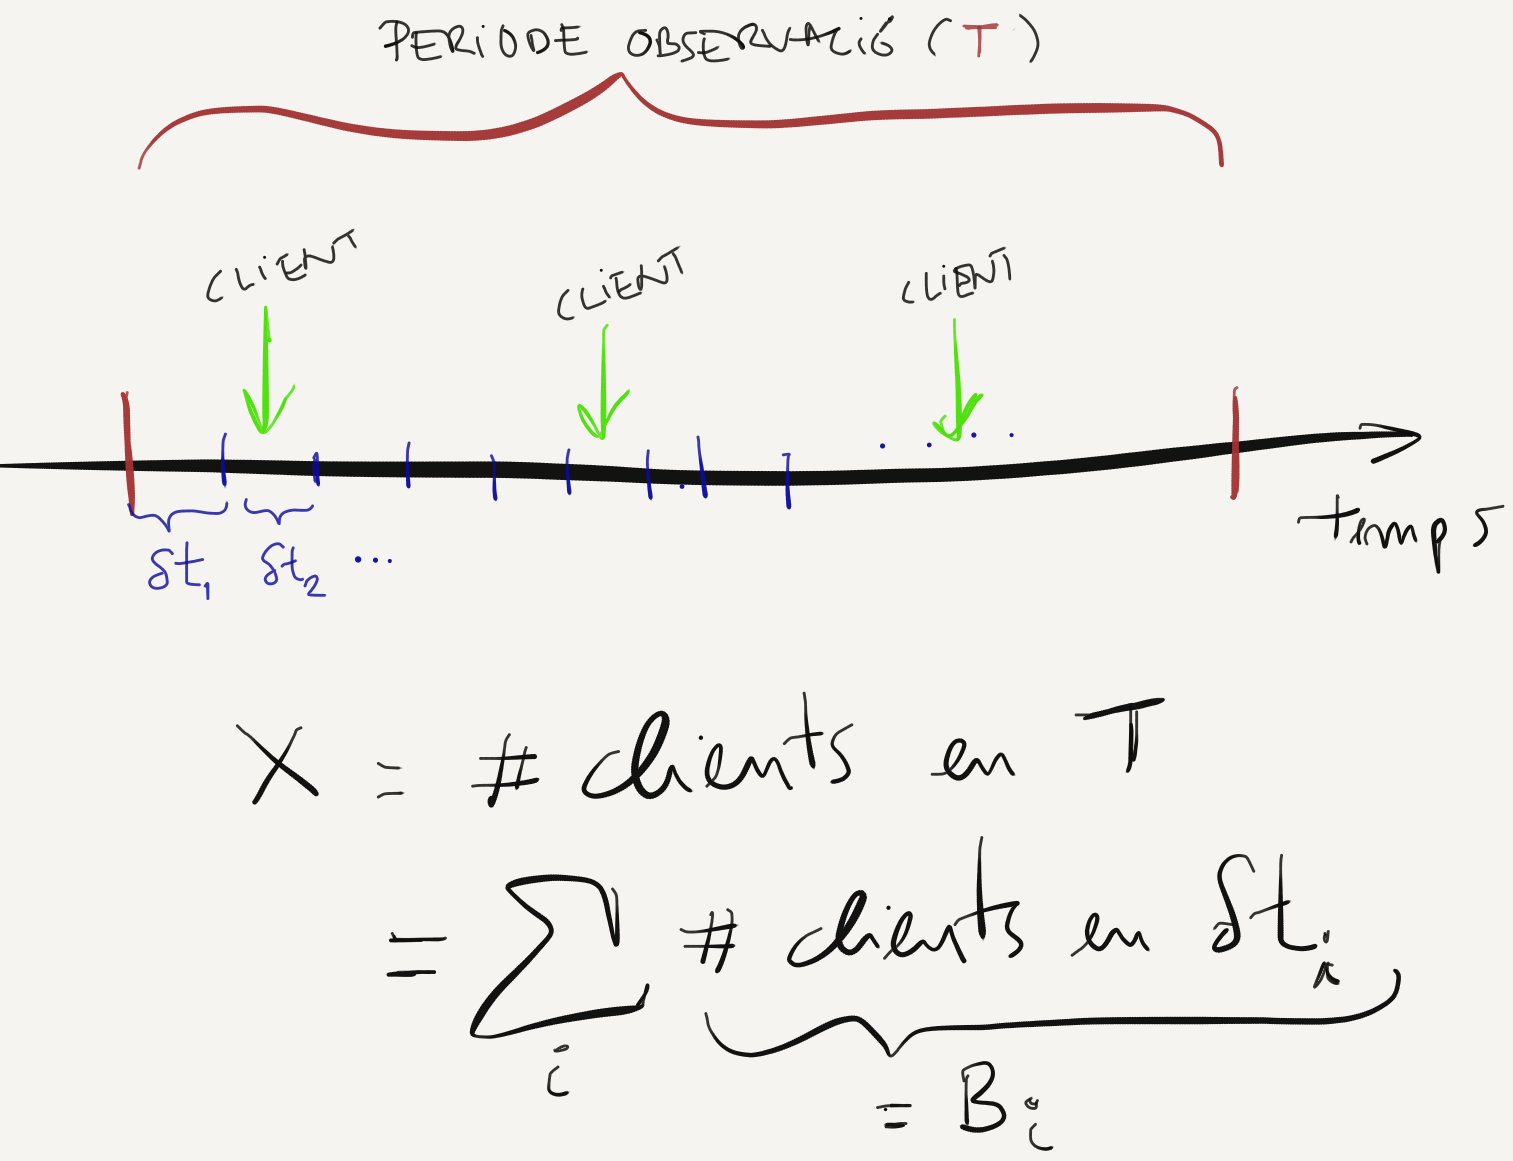 PERIODE OBSERVACIÓ (T)
CLIENT CLIENT CLIENT
δt₁ δt₂ ...
temps
X = # clients en T
= ∑ᵢ # clients en δtᵢ
= Bᵢ